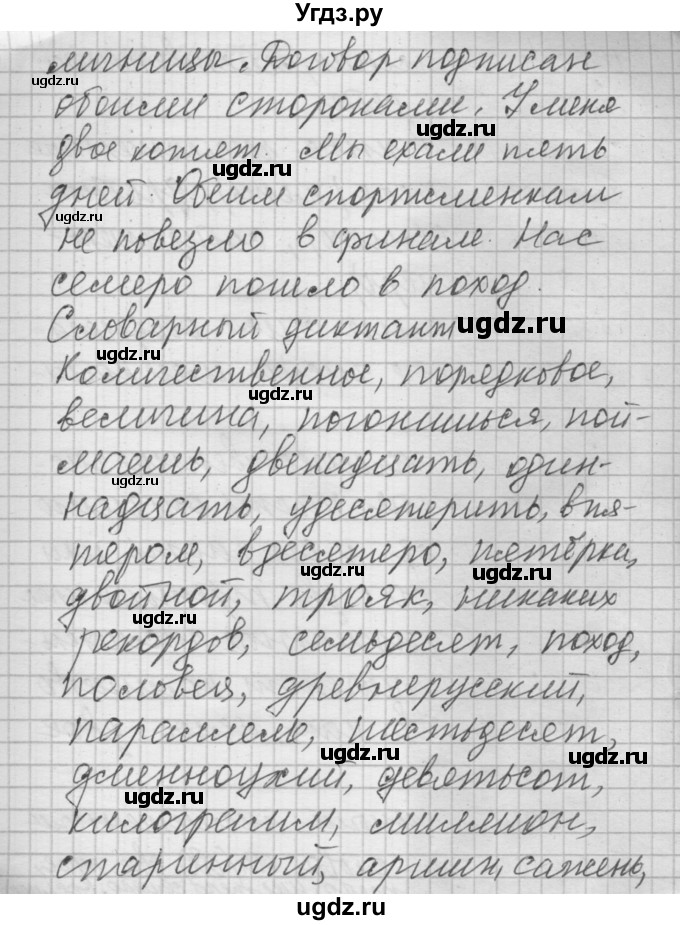 Угдз.ру
личницы. Договор подписан
обоими сторонами. У меня
двое котят. Мы ехали пять
дней. Обеим спортсменкам
не повезло в финале. Нас
семеро пошло в поход.
Словарный диктант
Количественное, порядковое,
величина, погонишься, пой-
маешь, двенадцать, один-
надцать, удесятерить, впя-
тером, вдесятеро, пятёрка,
двойной, трояк, никаких
рекордов, семьдесят, поход,
половея, древнерусский,
параллель, шестьдесят,
длинноухий, девятьсот,
килограмм, миллион,
старинный, аршин, сажень,
ugdz.ru